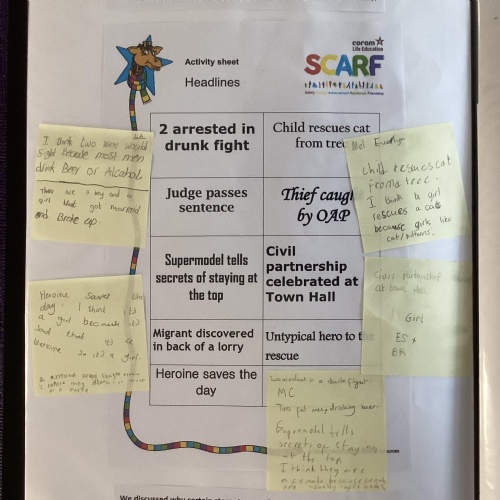 Activity sheet
Headlines
coram
Life Education
SCARF
2 arrested in
drunk fight
Child rescues cat
from tree
Judge passes
sentence
Thief caught
by OAP
Supermodel tells
secrets of staying at
the top
Civil
partnership
celebrated at
Town Hall
Migrant discovered
in back of a lorry
Untypical hero to the
rescue
Heroine saves the
day
I think two men would
fight because most men
drink Beer or Alcohol.
There are a boy and a
girl that got married
and Broke up.
child rescues cat
from a tree.
I think a girl
rescues a cat
because girls like
cat/kittens.
Heroine saves the
day. I think it's
a girl because it's
said that it's a
Heroine so it's a girl.
Civil Partnership
at town Hall
Girl
ES x
BR
MC
Two men drinking beer.
Supermodel tells
secrets of staying
at the top
I think they are
a female because
We discussed why certain